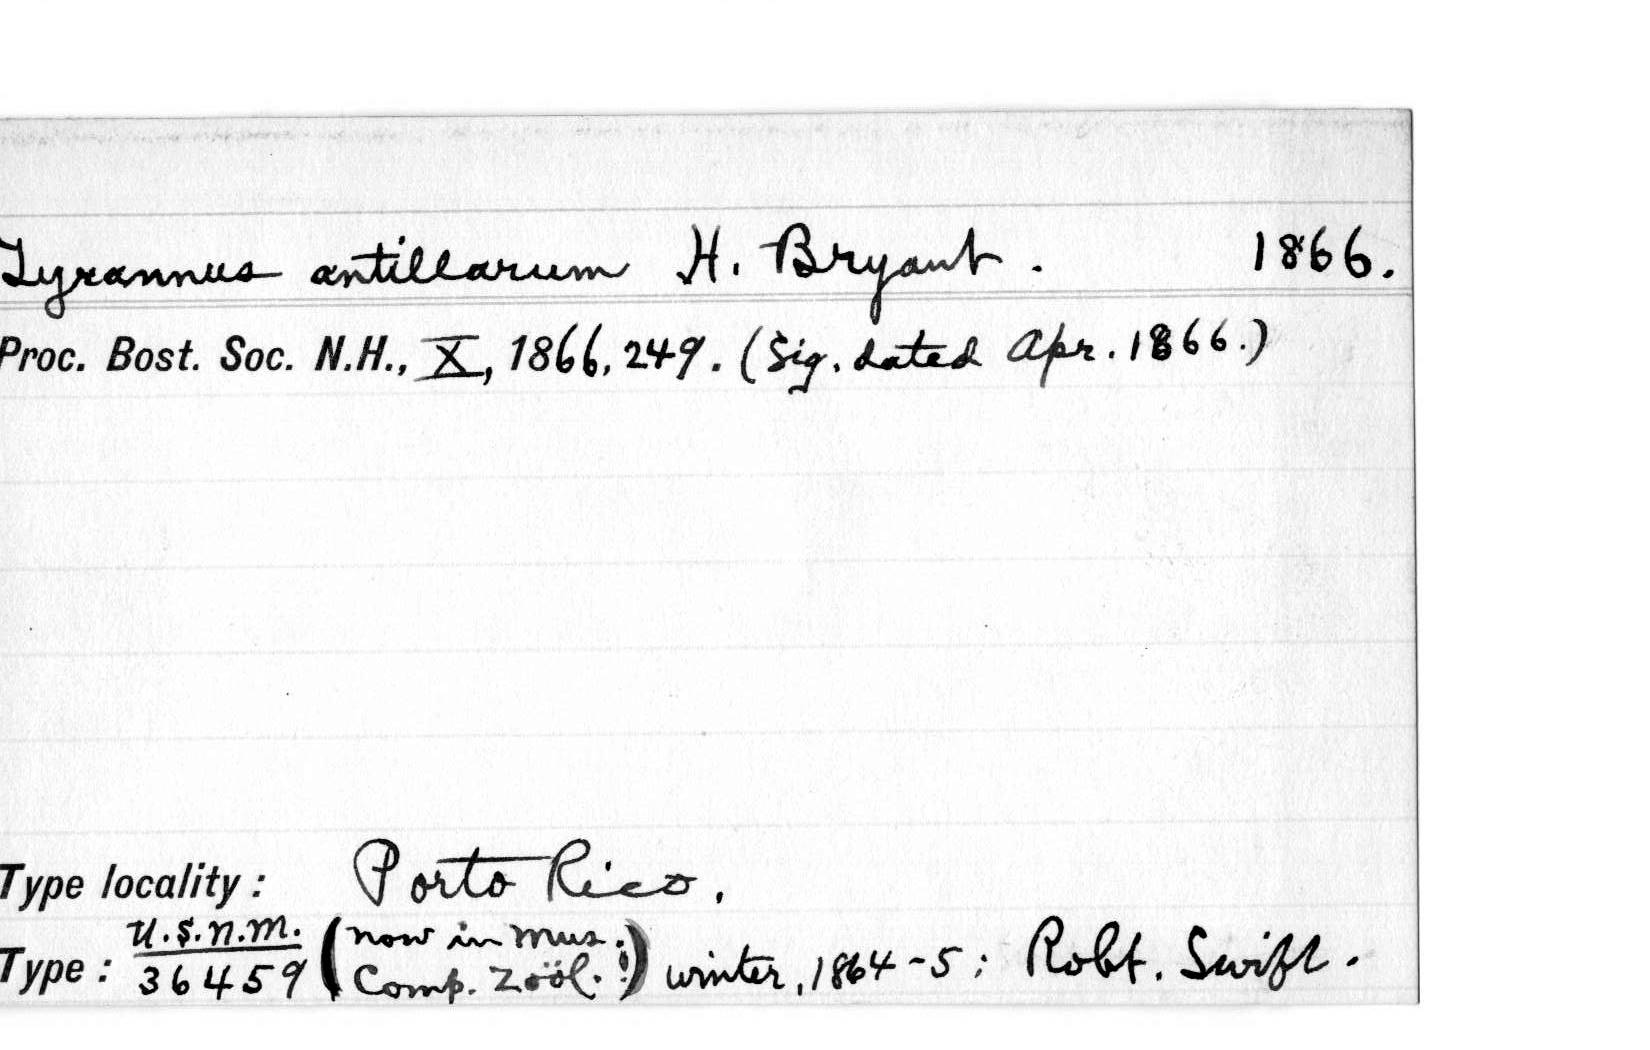 Tyrannus antillarum H. Bryant. 1866.
Proc. Bost. Soc. N.H., X, 1866, 249. (Sig. dated Apr. 1866.)
Type locality: Porto Rico.
Type: U.S.N.M. 36459 (now in Mus. Comp. Zoöl.!) winter, 1864-5; Robt. Swift.